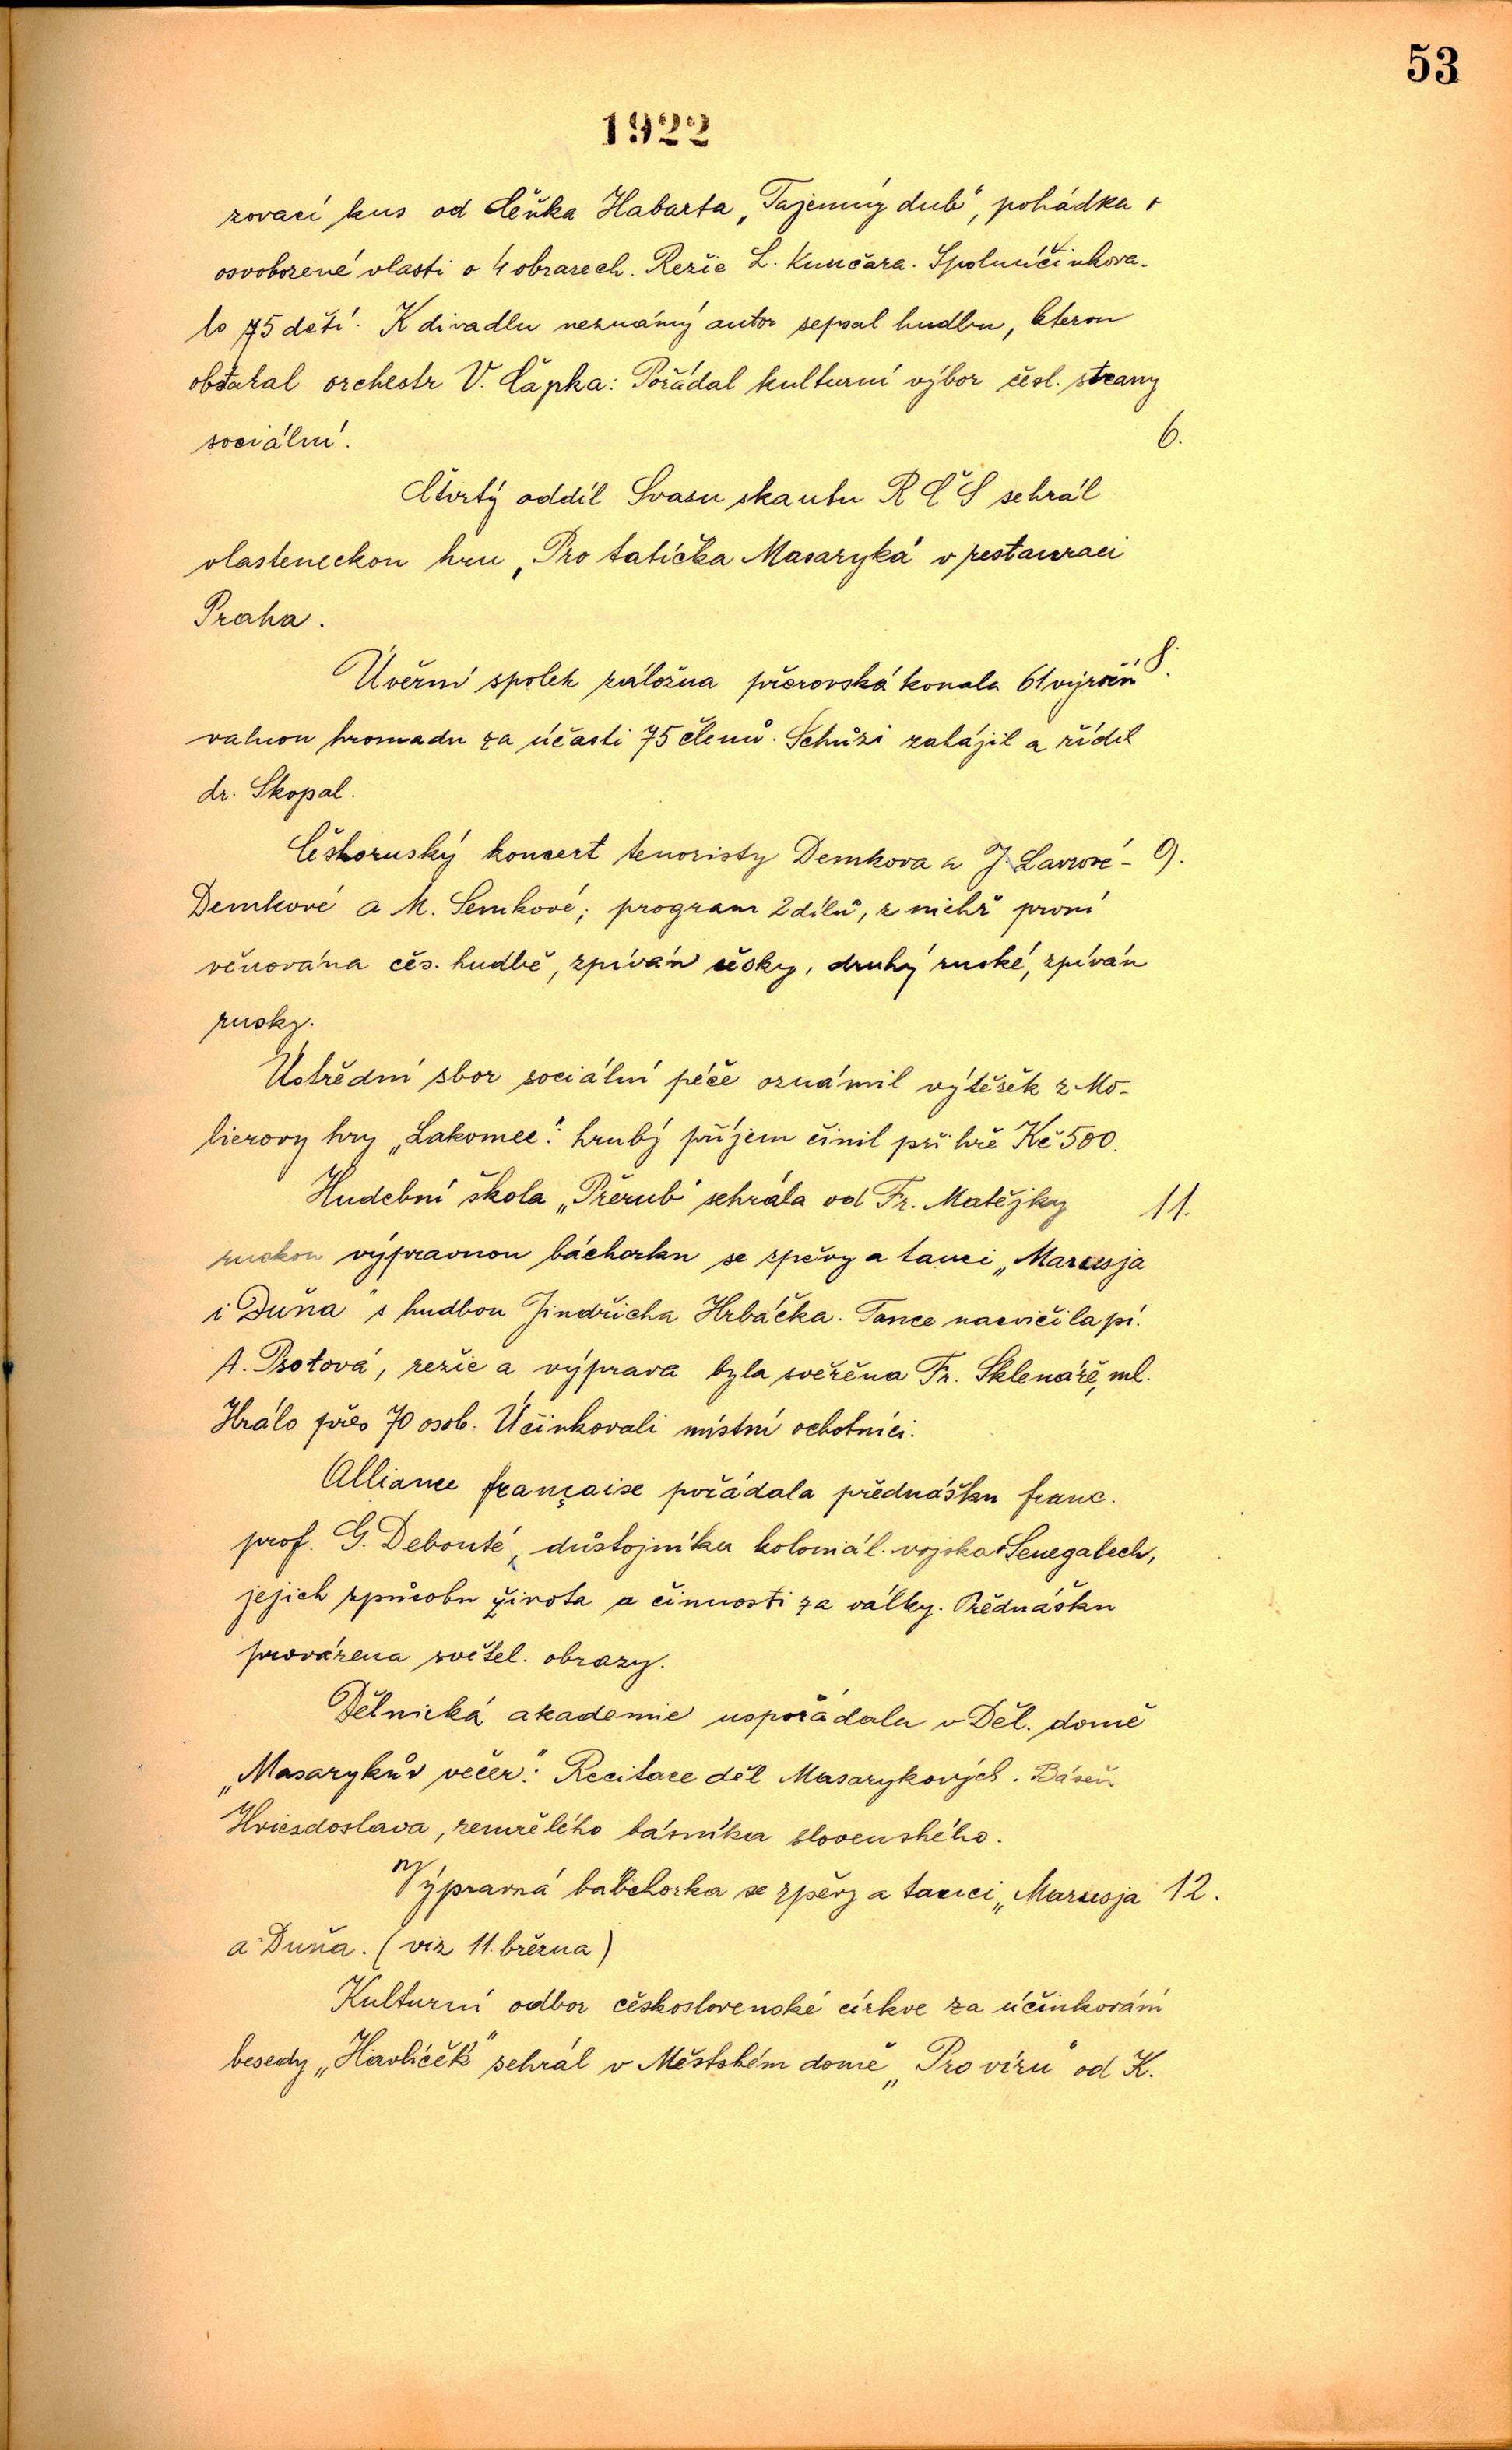 53
1922
zovací kus od Čeňka Habarta „Tajemný dub", pohádka o
osvobozené vlasti o 4 obrazech. Režie L. Kunčara. Spoluúčinkova-
lo 75 dětí. K divadlu neznámý autor sepsal hudbu, kterou
obstaral orchestr V. Čapka: Pořádal kulturní výbor čsl. strany
sociální. 6.
Čtvrtý oddíl Svazu skautu R Č S sehrál
vlasteneckou hru „Pro tatíčka Masaryka" v restauraci
Praha.
Úvěrní spolek záložna přerovská konala 61 výroční 8.
valnou hromadu za účasti 75 členů. Schůzi zahájil a řídil
dr. Skopal.
Českoruský koncert tenoristy Demkova a J. Lavrové- 9.
Demkové a M. Semkové; program 2 dílů, z nichž první
věnována čes. hudbě, zpíván česky, druhý ruské, zpíván
rusky.
Ústřední sbor sociální péče oznámil výtěšek z Mo-
lierovy hry „Lakomec": hrubý příjem činil při hře Kč 500.
Hudební škola „Přerub" sehrála od Fr. Matějky 11.
ruskou výpravnou báchorku se zpěvy a tanci „Marusja
i Duňa" s hudbou Jindřicha Hrbáčka. Tance nacvičila pí.
A. Psotová, režie a výprava byla svěřěna Fr. Sklenáře, ml.
Hrálo přes 70 osob. Účinkovali místní ochotníci.
Alliance française pořádala přednášku franc.
prof. G. Debouté, důstojníka koloniál. vojska o Senegalech,
jejich způsobu života a činnosti za války. Přednášku
provázena světel. obrazy.
Dělnická akademie uspořádala v Děl. domě
„Masarykův večer": Recitace děl Masarykových. Báseň
Hviezdoslava, zemřelého básníka slovenského.
Výpravná báchorka se zpěvy a tanci „Marusja 12.
a Duňa. (viz 11. března)
Kulturní odbor československé církve za účinkování
besedy „Havlíček" sehrál v Městském domě „Pro víru" od K.